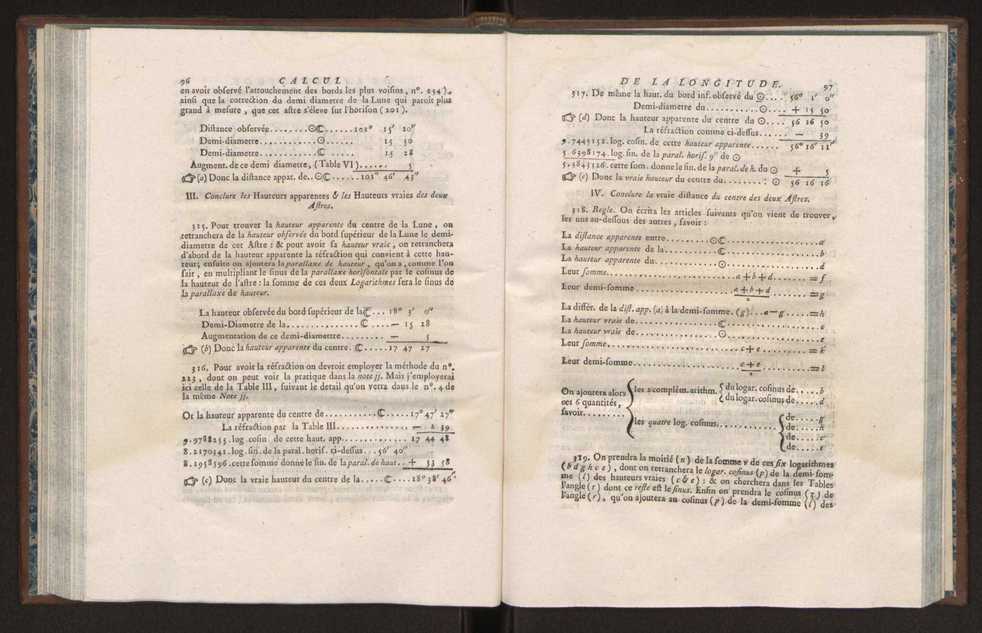 96 CALCUL
en avoir observé l'attouchement des bords les plus voisins, n°. 254),
ainsi que la correction du demi diametre de la Lune qui paroît plus
grand à mesure, que cet astre s'éleve sur l'horison (201).
Distance observée........☉☾......101° 15' 20"
Demi-diametre............☉....... 15 50
Demi-diametre............☾....... 15 28
Augment. de ce demi diametre, (Table VI)...... 5
☞ (a) Donc la distance appar. de..☉☾......101° 46' 43"
III. Conclure les Hauteurs apparentes & les Hauteurs vraies des deux
Astres.
315. Pour trouver la hauteur apparente du centre de la Lune, on
retranchera de la hauteur observée du bord supérieur de la Lune le demi-
diametre de cet Astre : & pour avoir sa hauteur vraie, on retranchera
d'abord de la hauteur apparente la réfraction qui convient à cette hau-
teur; ensuite on ajoutera la parallaxe de hauteur, qu'on a, comme l'on
sait, en multipliant le sinus de la parallaxe horisontale par le cosinus de
la hauteur de l'astre : la somme de ces deux Logarithmes sera le sinus de
la parallaxe de hauteur.
La hauteur observée du bord supérieur de la ☾... 18° 3' 0"
Demi-Diametre de la..............☾....— 15 28
Augmentation de ce demi-diametre..........— 5
☞ (b) Donc la hauteur apparente du centre. ☾.....17 47 27
316. Pour avoir la réfraction on devroit employer la méthode du n°.
223, dont on peut voir la pratique dans la note jj. Mais j'employerai
ici celle de la Table III, suivant le detail qu'on verra dans le n°. 4 de
la même Note jj.
Or la hauteur apparente du centre de..........☾.....17° 47' 27"
La réfraction par la Table III............— 2 39
9.9788255.log.cosin de cette haut. app............. 17 44 48
8.2170341.log.sin.de la paral.horif. ci-dessus...56' 40"
8.1958596.cette somme donne le sin. de la paral.de haut..+ 53 58
☞ (c) Donc la vraie hauteur du centre de la.....☾....18° 38' 46"
DE LA LONGITUDE. 97
317. De même la haut. du bord inf. observé du ☉.... 56° 1' 0"
Demi-diametre du...........☉.... + 15 50
☞ (d) Donc la hauteur apparente du centre du ☉.... 56 16 50
La réfraction comme ci-dessus...... — 39
9.7445152.log.cosin. de cette hauteur apparente...... 56° 16' 11"
5.6398174.log.sin. de la paral. horif. 9" de ☉
5.3843326.cette som. donne le sin. de la paral.de h. du ☉ + 5
☞ (e) Donc la vraie hauteur du centre du........ ☉ 56 16 16
IV. Conclure la vraie distance du centre des deux Astres.
318. Regle. On écrira les articles suivants qu'on vient de trouver,
les uns au-dessous des autres, savoir :
La distance apparente entre.........☉☾....................a
La hauteur apparente de la............☾....................b
La hauteur apparente du............☉....................d
Leur somme..........................a+b+d........=f
Leur demi-somme....................a+b+d/2.......=g
La différ. de la dist. app. (a) à la demi-somme. (g)...a—g......=h
La hauteur vraie de................☾....................c
La hauteur vraie de................☉....................e
Leur somme..........................c+e..........=k
Leur demi-somme....................c+e/2.........=l
On ajoutera alors
ces 6 quantités,
savoir..........
les 2 complém. arithm. { du logar. cosinus de.....b
du logar. cosinus de.....d
les quatre log. cosinus............. { de......g
de......h
de......c
de......e
319. On prendra la moitié (n) de la somme v de ces six logarithmes
(b d g h c e), dont on retranchera le logar. cosinus (p) de la demi-som-
me (l) des hauteurs vraies (c & e) : & on cherchera dans les Tables
l'angle (r) dont ce reste est le sinus. Enfin on prendra le cosinus (s) de
l'angle (r), qu'on ajoutera au cosinus (p) de la demi-somme (l) des